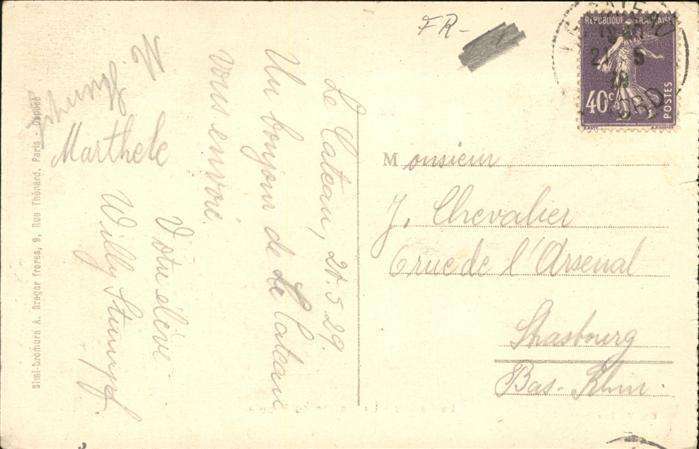 FR-
Le Cateau, 20.5.29.
Un bonjour de Le Cateau
vous envoie
Votre élève
Willy Stumpf.
Marthele
RÉPUBLIQUE FRANÇAISE
40c
POSTES
Monsieur
J. Chevalier
6 rue de l'Arsenal
Strasbourg
Bas-Rhin.
Simi-bromure A. Breger frères, 9, Rue Thénard, Paris